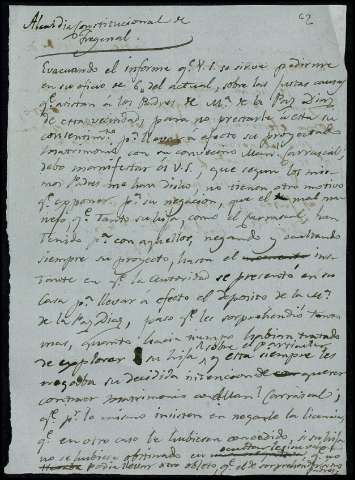 Alcaldia Constitucional de
Fregenal
Evacuando el informe q.e V.S. se sirve pedirme
en su oficio de 6 del actual, sobre las justas causas
q.e asistan a los Padres de M.a de la Paz Diaz
de esta vecindad, para no prestarle a esta su
consentim.to p.a llevar a efecto su proyectado
matrimonio con su convecino Man.l Carrascal,
debo manifestar a V.S., que segun los mis-
mos Padres me han dicho, no tienen otro motivo
q.e exponer p.a su negacion, que el mal ma-
nejo q.e tanto su hija, como el Carrascal, han
tenido p.a con aquellos, negando y ocultando
siempre su proyecto, hasta el ins-
tante en q.e la autoridad se presentó en su
casa p.a llevar a efecto el deposito de la M.a
de la Paz Diaz, paso q.e les sorprehendió tanto
mas, quanto hacia mucho habian tratado
de explorar sobre el particular a su hija, y esta siempre les
negaba su decidida intencion de querer
contraer matrimonio con Man.l Carrascal;
q.e p.r lo mismo insisten en negarle la licencia,
q.e en otro caso le hubieran concedido, si su hija
no se hubiera obstinado en
podia llevar a su objeto, q.e el de sorprender a sus
padres